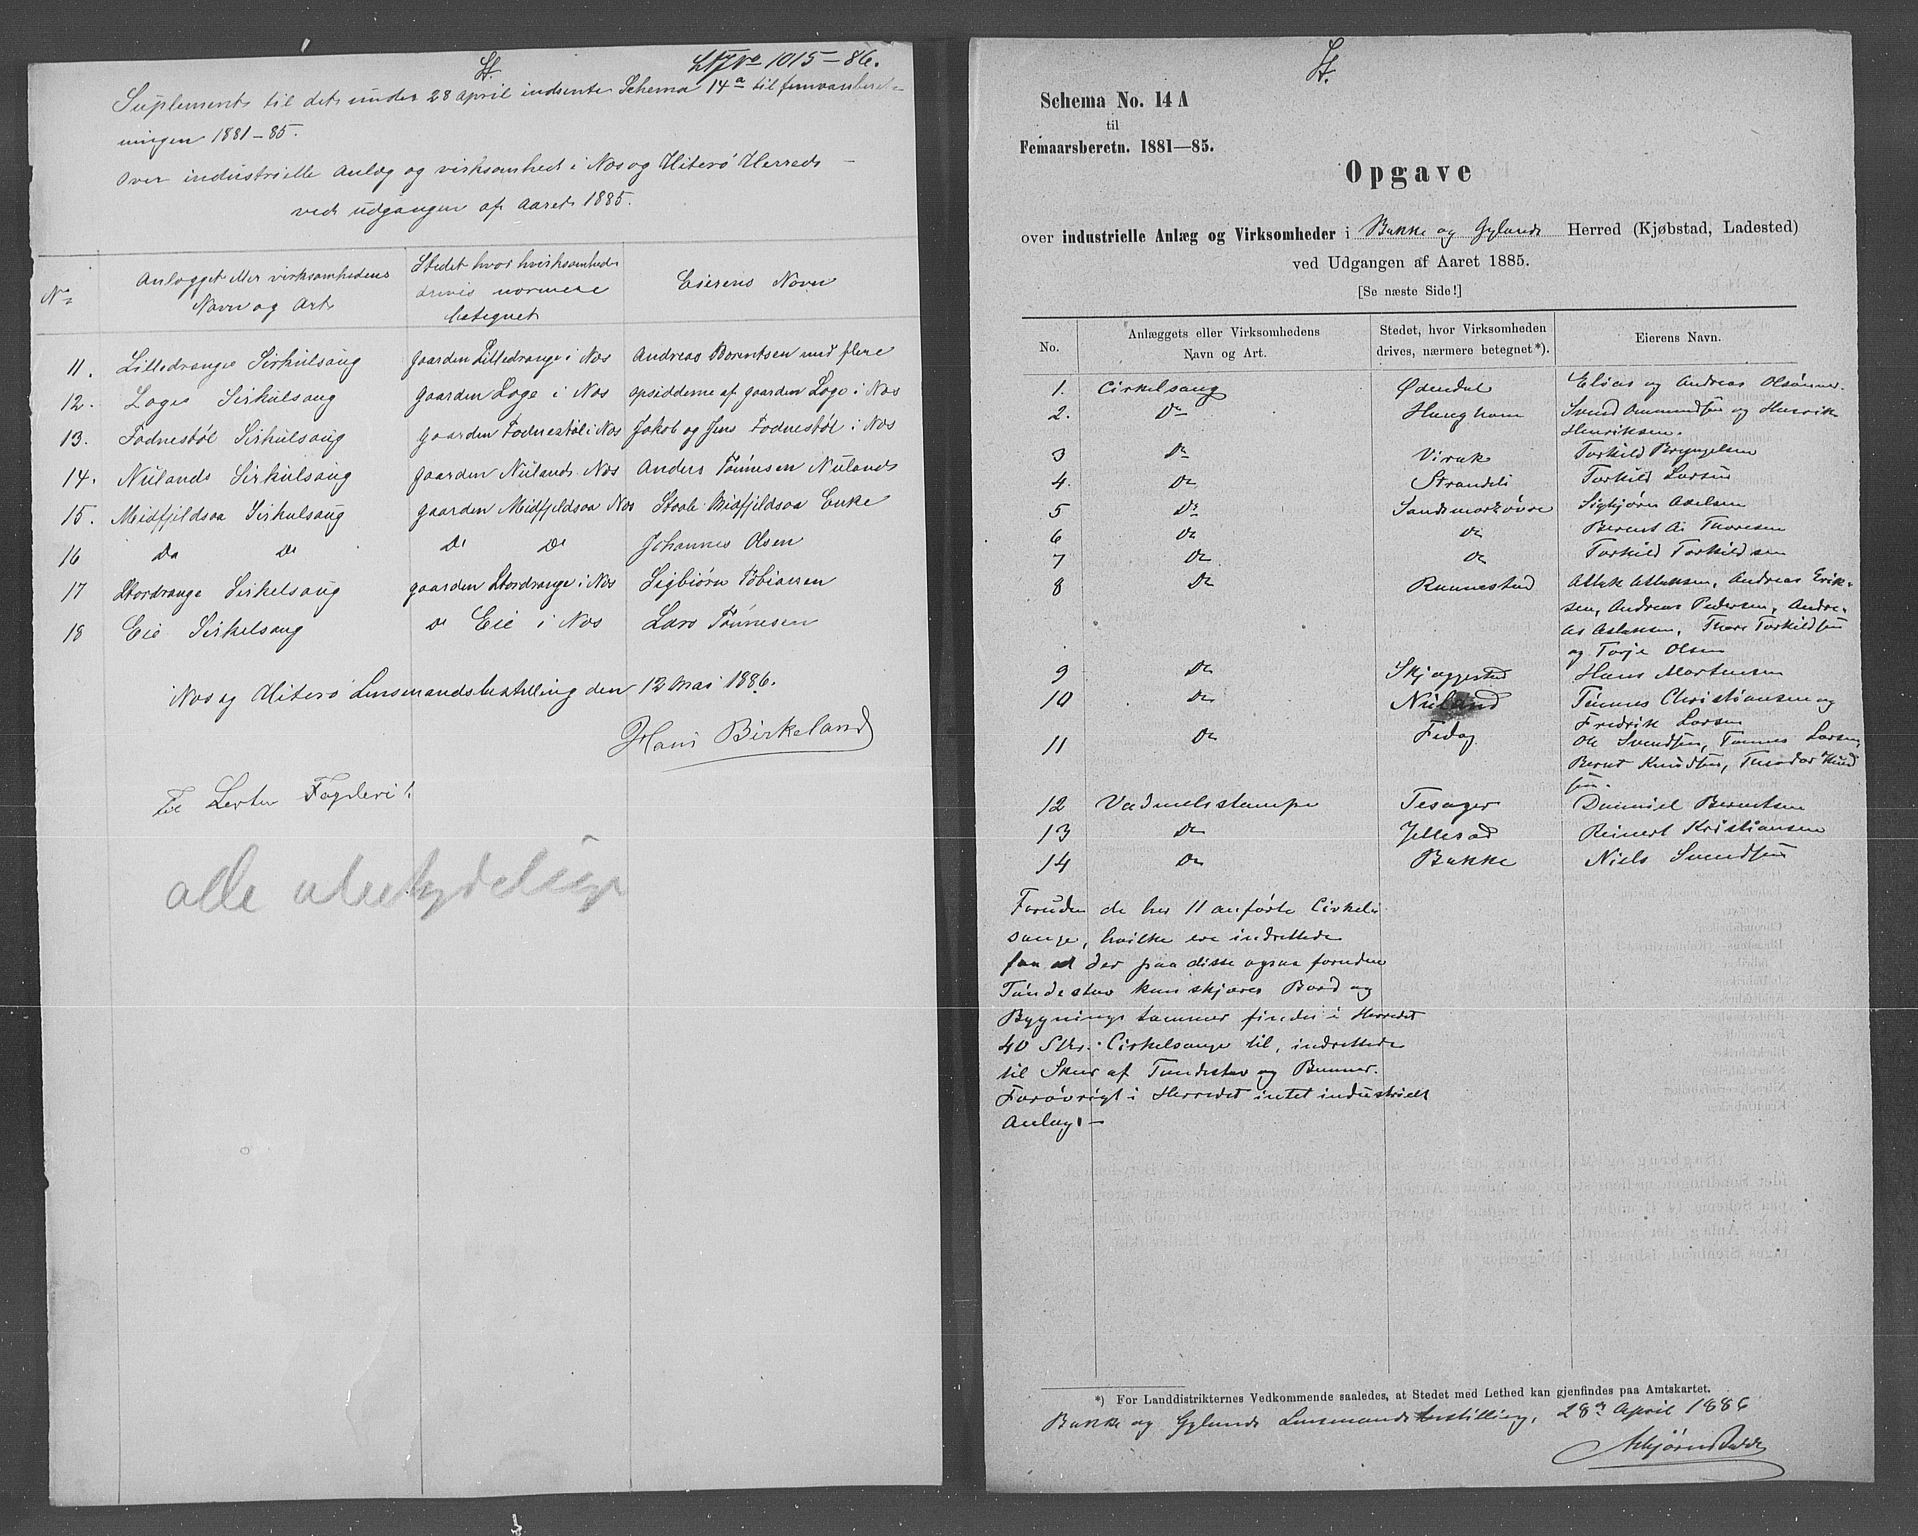 No 1015-86.
Suplement til det under 28 April indsente Schema 14a til femaarsberet-
ningen 1881-85.
over industrielle Anlæg og virksomhed i Nes og Hiterø Herred
ved udgangen af Aaret 1885.
No
Anlægget eller virksomhedens Navn og Art
Stedet hvor hvirksomheden drives nærmere betegnet
Eierens Navn
11. Lilledrange Sirkulsaug gaarden Lilledrange i Nes Andreas Berentsen med flere
12. Loge Sirkulsaug gaarden Loge i Nes opsidderne af gaarden Loge i Nes
13. Fodnestøl Sirkulsaug gaarden Fodnestøl i Nes Jakob og Jens Fodnestøl i Nes
14. Nulands Sirkulsaug gaarden Nuland Nes Anders Tønnesen Nuland
15. Midfjeldsaa Sirkulsaug gaarden Midfjeldsaa Nes Staale Midfjeldsaa Enke
16 Do Do Do Do Johannes Olsen
17 Stordrange Sirkelsaug gaarden Stordrange i Nes Sigbiørn Tobiasen
18 Eie Sirkelsaug Do Eie i Nes Lars Tønnesen
Nes og Hiterø Lensmandsbestilling den 12 Mai 1886.
Hans Birkeland
Til Lister Fogderi
alle ubetydelige
Schema No. 14 A
til
Femaarsberetn. 1881—85.
Opgave
over industrielle Anlæg og Virksomheder i Bakke og Gyland Herred (Kjøbstad, Ladested)
ved Udgangen af Aaret 1885.
[Se næste Side!]
No.
Anlæggets eller Virksomhedens
Navn og Art.
Stedet, hvor Virksomheden
drives, nærmere betegnet*).
Eierens Navn.
1. Cirkelsaug Ødendal Elias og Andreas Olsønner.
2. Do Haughom Svend Aamundsen og Henrik
Henriksen.
3 Do Virak Torkild Bryngelsen
4. Do Strandli Torkild Larsen
5 Do Sandsmark Sigbjørn Axelsen
6 Do Do Berent A. Thoresen
7 Do Do Torkild Torkildsen
8 Do Runnestad Atlak Aslaksen, Andreas Erik-
sen, Andreas Pedersen, Andre-
as Aslaksen, Thore Torkildsen
og Torje Olsen
9 Do Skjeggestad Hans Mortensen
10 Do Nuland Tønnes Christiansen og
Fredrik Larsen
11 Do Feda Ole Svendsen, Tønnes Larsen,
Bernt Knudsen, Theodor Knud
sen.
12 Vadmelsstampe Tesager Danniel Berntsen
13 Do Jellesad Reinert Kristiansen
14 Do Bakke Niels Svendsen
Foruden de her 11 anførte Cirkel-
sauge, hvilke ere indrettede
saa at der paa disse ogsaa foruden
Tøndestav kan skjæres Bord og
Bygningstømmer findes i Herredet
40 Stkr. Cirkelsauge til, indrettede
til Skur af Tøndestav og Bunner.
Forøvrigt i Herredet intet industrielt
Anlæg. —
*) For Landdistrikternes Vedkommende saaledes, at Stedet med Lethed kan gjenfindes paa Amtskartet.
Bakke og Gylands Lensmandsbestilling, 28de April 1886